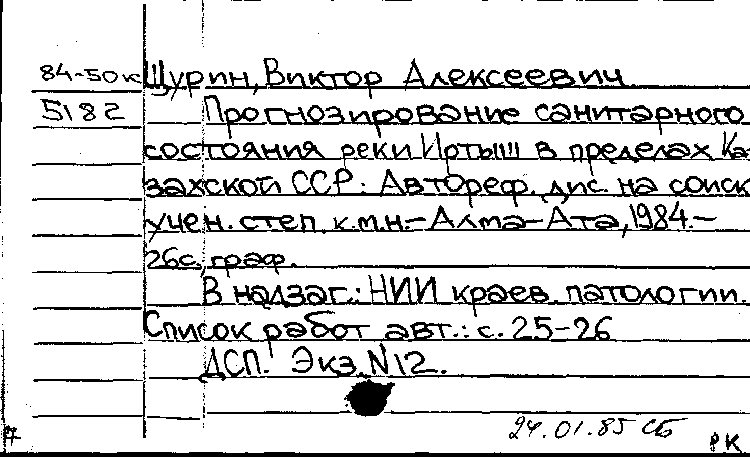 84-50к Щурин, Виктор Алексеевич
5182 Прогнозирование санитарного
состояния реки Иртыш в пределах Ка-
захской ССР: Автореф. дис. на соиск
учен. степ. к.м.н.- Алма-Ата, 1984.-
26с, граф.
В надзаг.: НИИ краев. патологии.
Список работ авт.: с. 25-26
ДСП. Экз. N12.
24.01.85 СБ
РК